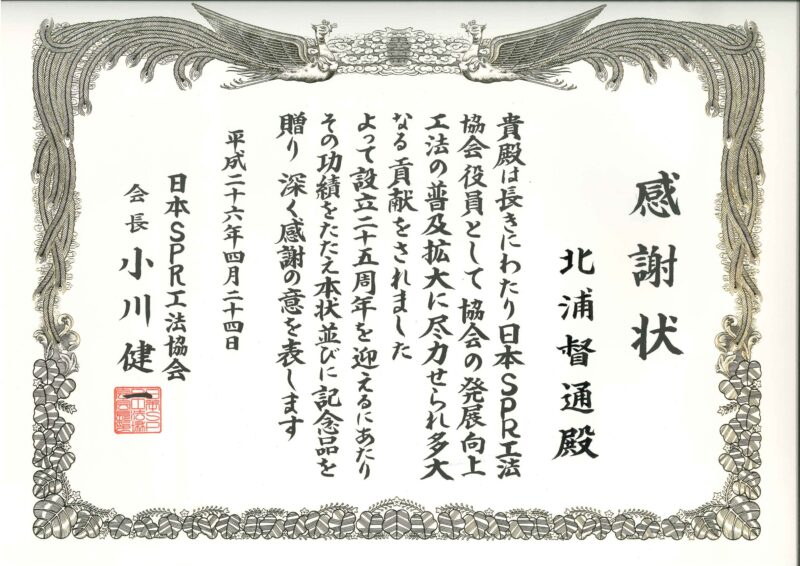 感謝状
北浦督通殿
貴殿は長きにわたり日本SPR工法
協会役員として 協会の発展向上
工法の普及拡大に尽力せられ多大
なる貢献をされました
よって設立二十五周年を迎えるにあたり
その功績をたたえ本状並びに記念品を
贈り 深く感謝の意を表します
平成二十六年四月二十四日
日本SPR工法協会
会長 小川健一